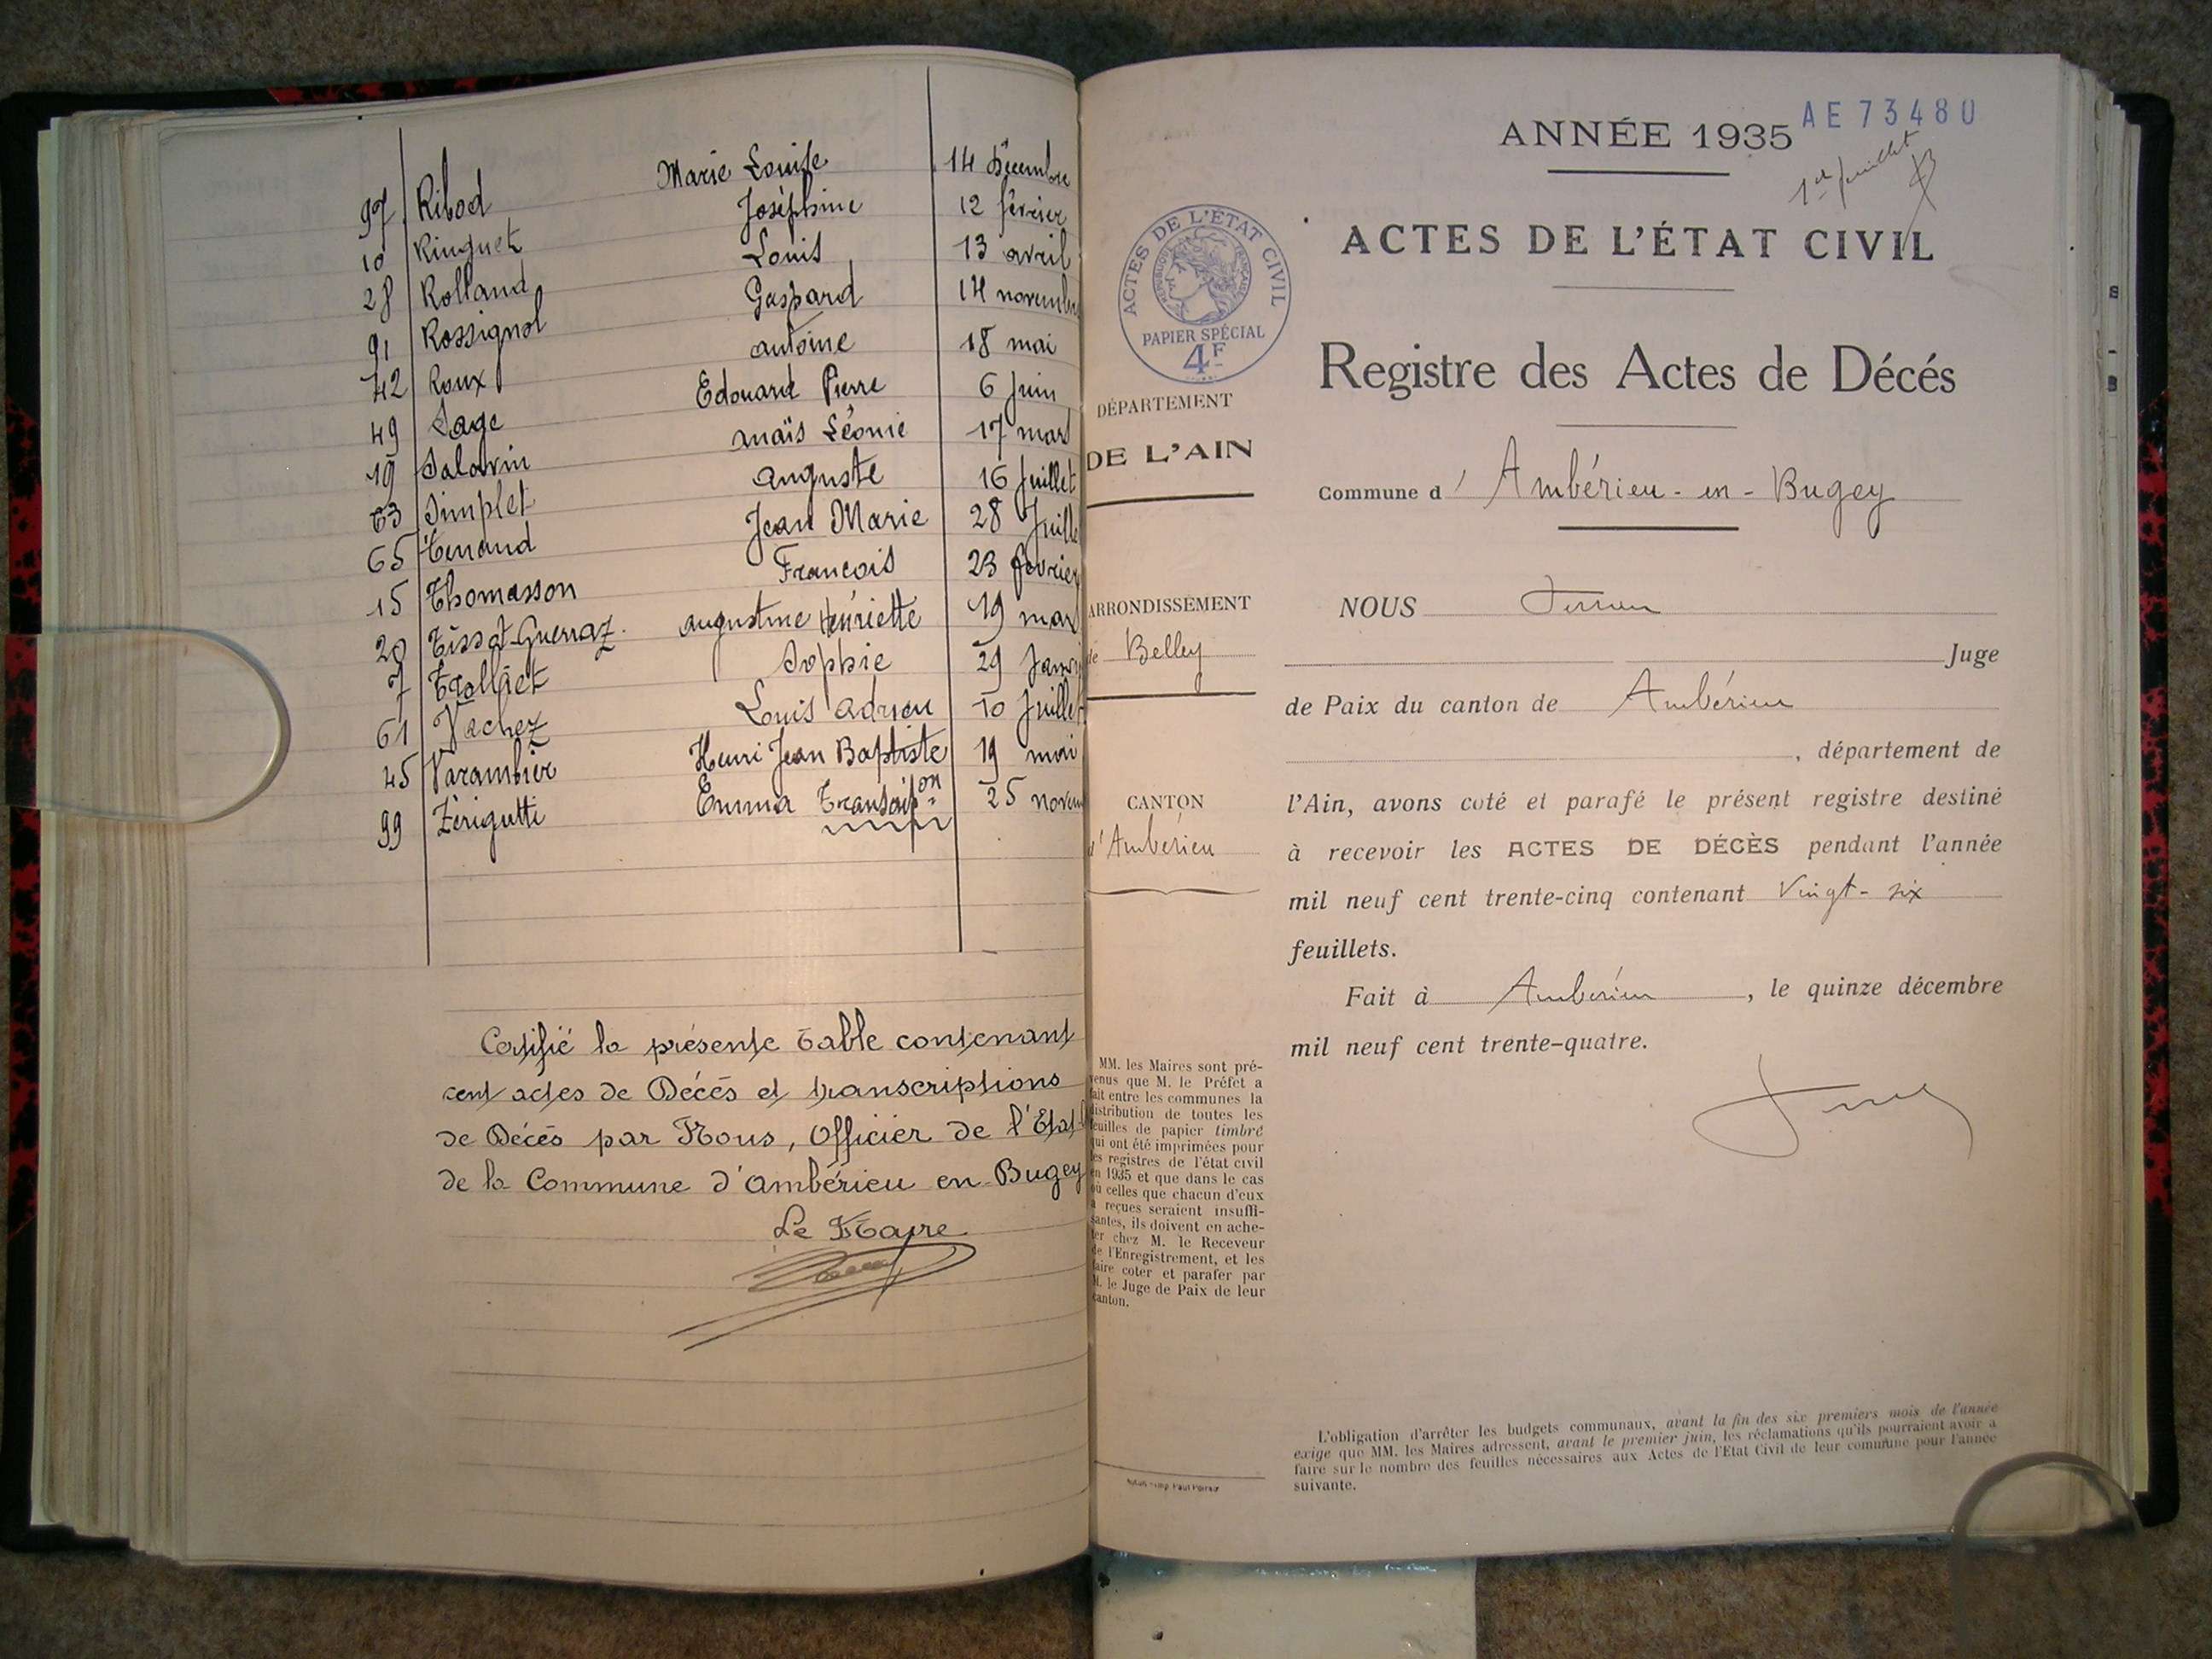 97 Ribod Marie Louise 14 Décembre
10 Ringuet Joséphine 12 février
28 Rolland Louis 13 avril
91 Rossignol Gaspard 14 novembre
42 Roux antoine 18 mai
49 Sage Edouard Pierre 6 juin
19 Salavin anaïs Léonie 17 mars
63 Simplet auguste 16 Juillet
65 Tenand Jean Marie 28 Juille
15 Thomasson François 23 février
20 Tissot-Guerraz augustine Henriette 19 mars
7 Trolliet Sophie 29 Janvi
61 Vachez Louis adrien 10 Juillet
45 Varambier Henri Jean Baptiste 19 mai
99 Zérigutti Emma Transcip:on 25 novem
Certifié la présente table contenant
cent actes de Décès et transcriptions
de Décès par Nous, Officier de l'Etat
de la Commune d'ambérieu en-Bugey
Le Maire
ANNÉE 1935
AE 73480
1er juillet
ACTES DE L'ÉTAT CIVIL
ACTES DE L'ÉTAT CIVIL
RÉPUBLIQUE FRANÇAISE
PAPIER SPÉCIAL
4F
Registre des Actes de Décés
DÉPARTEMENT
DE L'AIN
Commune d' Ambérieu-en-Bugey
ARRONDISSEMENT
de Belley
NOUS
Juge
de Paix du canton de Ambérieu
, département de
CANTON
d'Ambérieu
l'Ain, avons coté et parafé le présent registre destiné
à recevoir les ACTES DE DÉCÈS pendant l'année
mil neuf cent trente-cinq contenant Vingt-six
feuillets.
Fait à Ambérieu, le quinze décembre
mil neuf cent trente-quatre.
MM. les Maires sont pré-
venus que M. le Préfet a
fait entre les communes la
distribution de toutes les
feuilles de papier timbré
qui ont été imprimées pour
les registres de l'état civil
en 1935 et que dans le cas
où celles que chacun d'eux
a reçues seraient insuffi-
santes, ils doivent en ache-
ter chez M. le Receveur
de l'Enregistrement, et les
faire coter et parafer par
M. le Juge de Paix de leur
canton.
L'obligation d'arrêter les budgets communaux, avant la fin des six premiers mois de l'année
exige que MM. les Maires adressent, avant le premier juin, les réclamations qu'ils pourraient avoir à
faire sur le nombre des feuilles nécessaires aux Actes de l'Etat Civil de leur commune pour l'année
suivante.